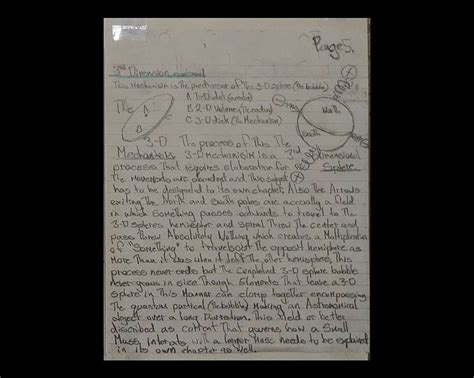 Page 5.
3rd Dimension, continued
This Mechanism is the predecessor of The 3-D sphere (The Bubble)
A 1-D dot (
B 2-D Volume (
C 3-D disk (The Mechanism)
The
A
North
South
3-D The process of This The 3rd Dimensional
Mechanism 3-D mechanisim is a Sphere
process that requires elaboration for
The movements are abundant and This subject
has to be designated to its own chapter, Also The Arrows
exiting The North and South poles are accually a field
in which something passes outwards to travel to The
3-D spheres hemispher and spiral Threw The center and
pass threw Absolutely Nothing which creates a Multiplication
of "Something" to travel about The opposit hemisphere as
More Than it was when it left The other hemisphere, This
process never ends but The Completed 3-D sphere bubble
Never grows in size Though Elements that leave a 3-D
sphere in This Manner can clump together encompassing
The quantum partical (The bubble) Making an Astronomical
object over a long Duration. This field or better
discribed as content That governs how a Small
Mass interacts with a larger Mass needs to be explained
in its own chapter as well.